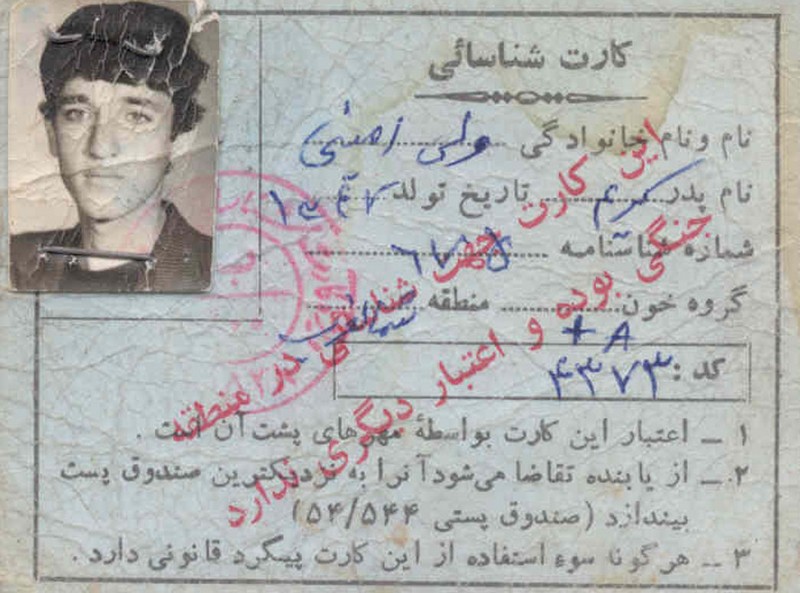 کارت شناسائی
نام و نام خانوادگی ولی
نام پدر کرم تاریخ تولد
شماره شناسنامه ۶۷۵
گروه خون A + منطقه
کد : ۴۳۷۳
۱ ــ اعتبار این کارت بواسطهٔ مهرهای پشت آن است .
۲ ــ از یابنده تقاضا می‌شود آنرا به نزدیکترین صندوق پست
بیندازد (صندوق پستی ۵۴/۵۴۴)
۳ ــ هر گونه سوء استفاده از این کارت پیگرد قانونی دارد .
این کارت جهت شناسائی در منطقه
جنگی بوده و اعتبار دیگری ندارد